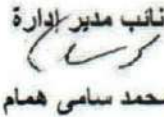 نائب مدير إدارة
حمد سامى همام